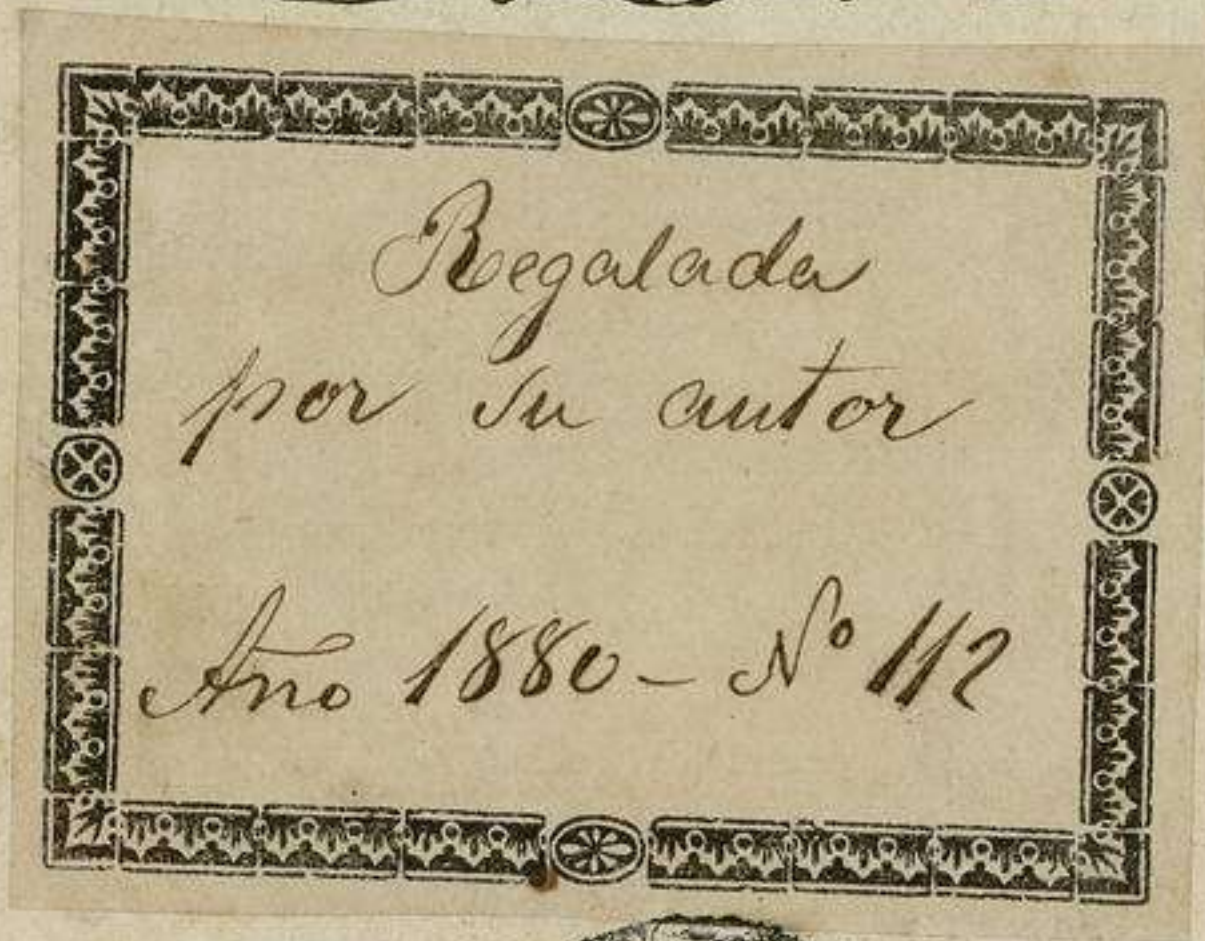 Regalada
por su autor
Año 1880 - Nº 112